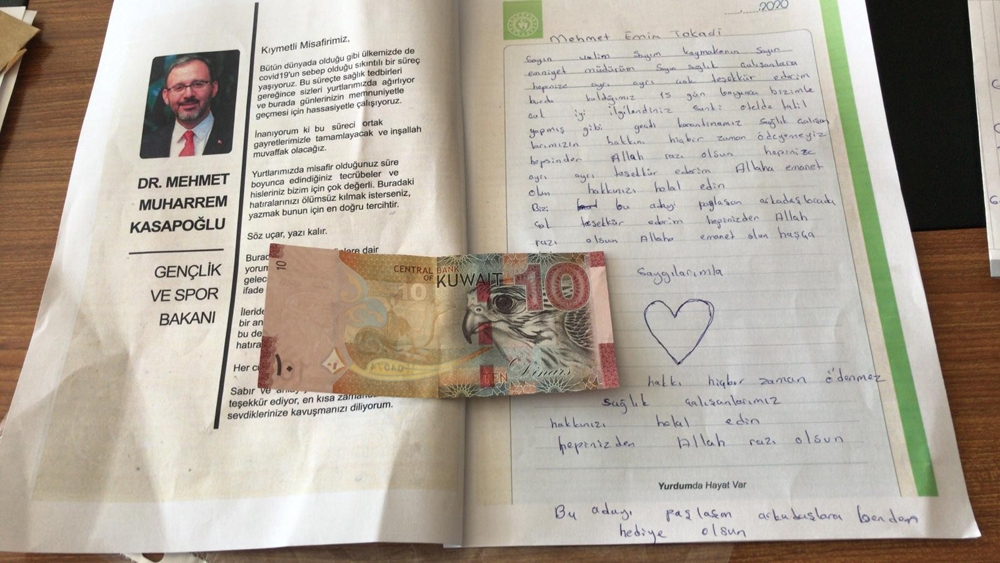 DR. MEHMET
MUHARREM
KASAPOĞLU
GENÇLİK
VE SPOR
BAKANI
Kıymetli Misafirimiz,
Bütün dünyada olduğu gibi ülkemizde de
covid19'un sebep olduğu sıkıntılı bir süreç
yaşıyoruz. Bu süreçte sağlık tedbirleri
gereğince sizleri yurtlarımızda ağırlıyor
ve burada günlerinizin memnuniyetle
geçmesi için hassasiyetle çalışıyoruz.
İnanıyorum ki bu süreci ortak
gayretlerimizle tamamlayacak ve inşallah
muvaffak olacağız.
Yurtlarımızda misafir olduğunuz süre
boyunca edindiğiniz tecrübeler ve
hisleriniz bizim için çok değerli. Buradaki
hatıralarınızı ölümsüz kılmak isterseniz,
yazmak bunun için en doğru tercihtir.
Söz uçar, yazı kalır.
dair
Sabır ve
teşekkür ediyor, en kısa
sevdiklerinize kavuşmanızı diliyorum.
10
CENTRAL BANK
OF KUWAIT
10
10
١٠
2020
Mehmet Emin Tokadi
Sayın valim Sayın kaymakamım Sayın
emniyet müdürüm Sayın sağlık çalışanlara
hepinize ayrı ayrı çok teşekkür ederim
burda kaldığımız 15 gün boyunca bizimle
çok iyi ilgilendiniz sanki otelde tatil
yapmış gibi sağlık çalışan
larımızın hakkını hiçbir zaman ödeyemeyiz
hepsinden Allah razı olsun hepinize
ayrı ayrı teşekkür ederim Allaha emanet
olun hakkınızı halal edin
Bizi bu adayı paylaşan
çok teşekkür ederim hepinizden Allah
razı olsun Allaha emanet olun başka
Saygılarımla
hakkı hiçbir zaman ödenmez
sağlık çalışanlarımız
hakkınızı halal edin
hepinizden Allah razı olsun
Yurdumda Hayat Var
Bu adayı paşlaşım arkadaşlara benden
hediye olsun